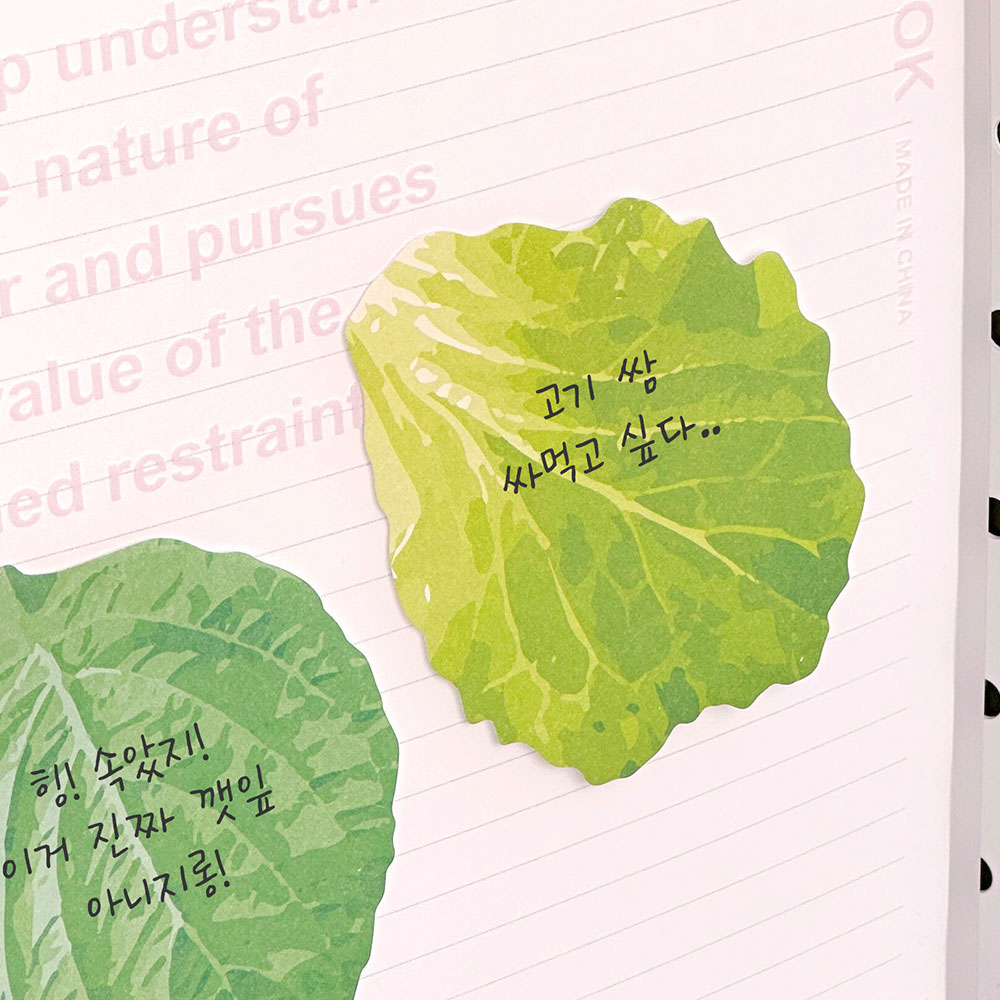 p understan
e nature of
r and pursues
value of the
ned restraint
OK
MADE IN CHINA
고기 쌈
싸먹고 싶다..
힝! 속았지!
이거 진짜 깻잎
아니지롱!